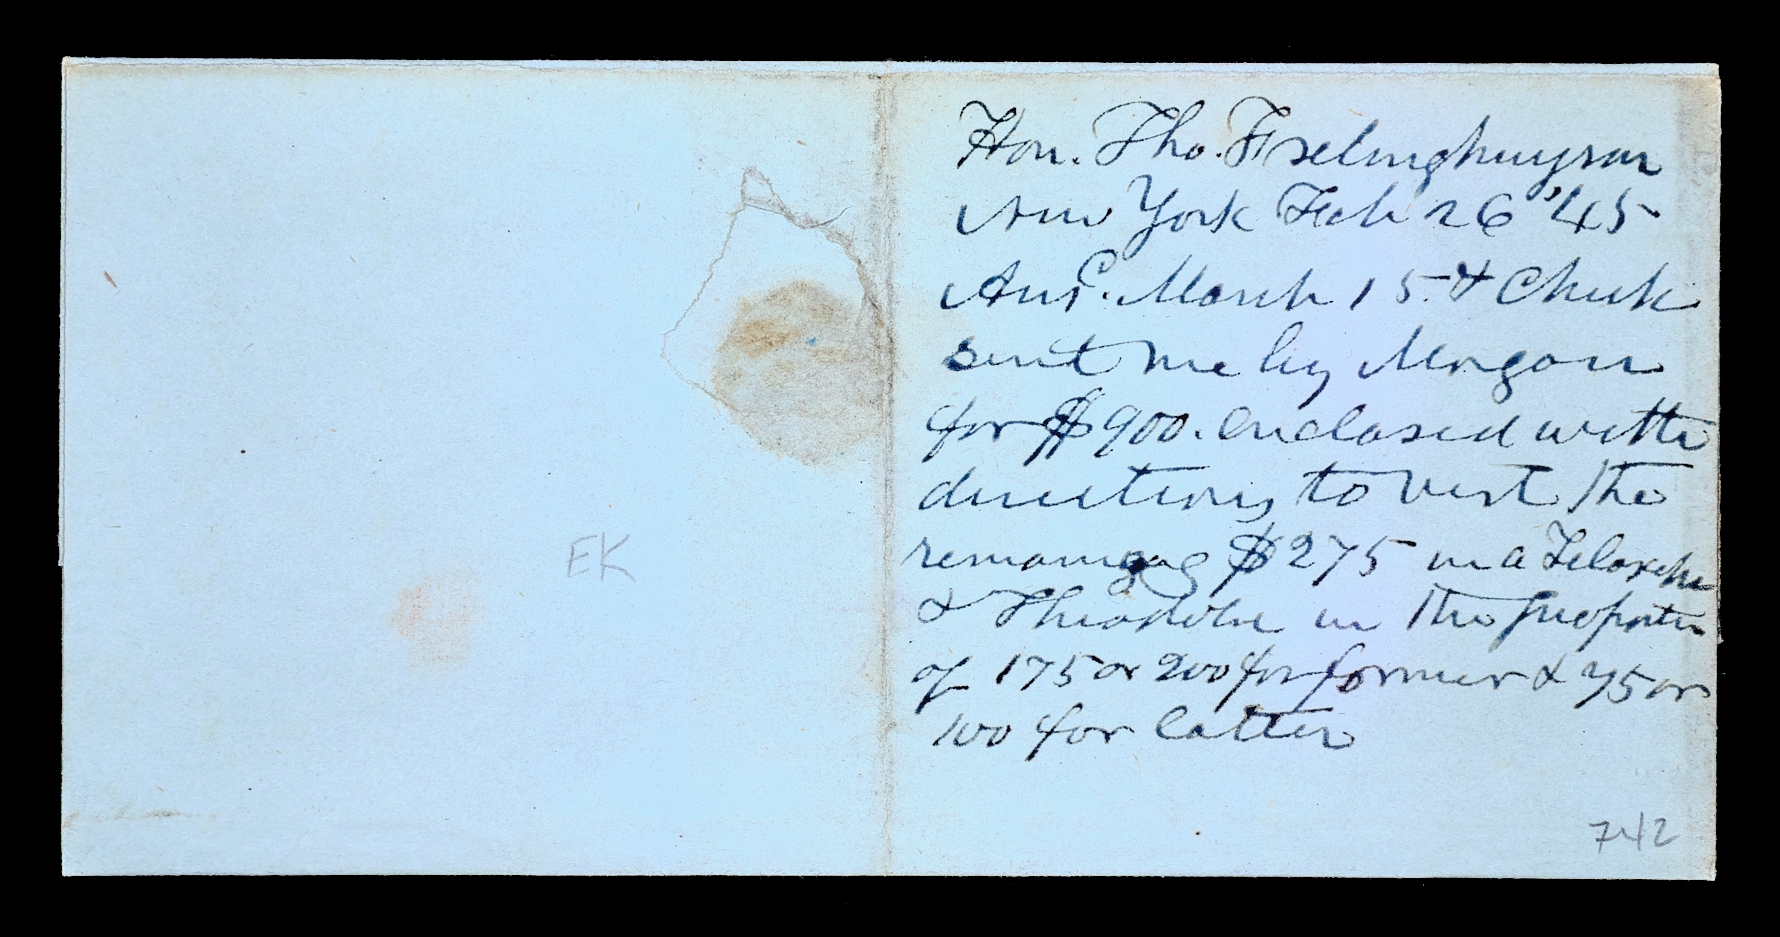 Hon. Tho. Frelinghuysen
New York Feb 26 '45
Ansd. March 15. & Check
sent me by Morgan
for $900. enclosed with
directions to vest the
remaining $275 in a Telescope
& Theodolite in the proportion
of 175 or 200 for former & 75 or
100 for latter
EK
742